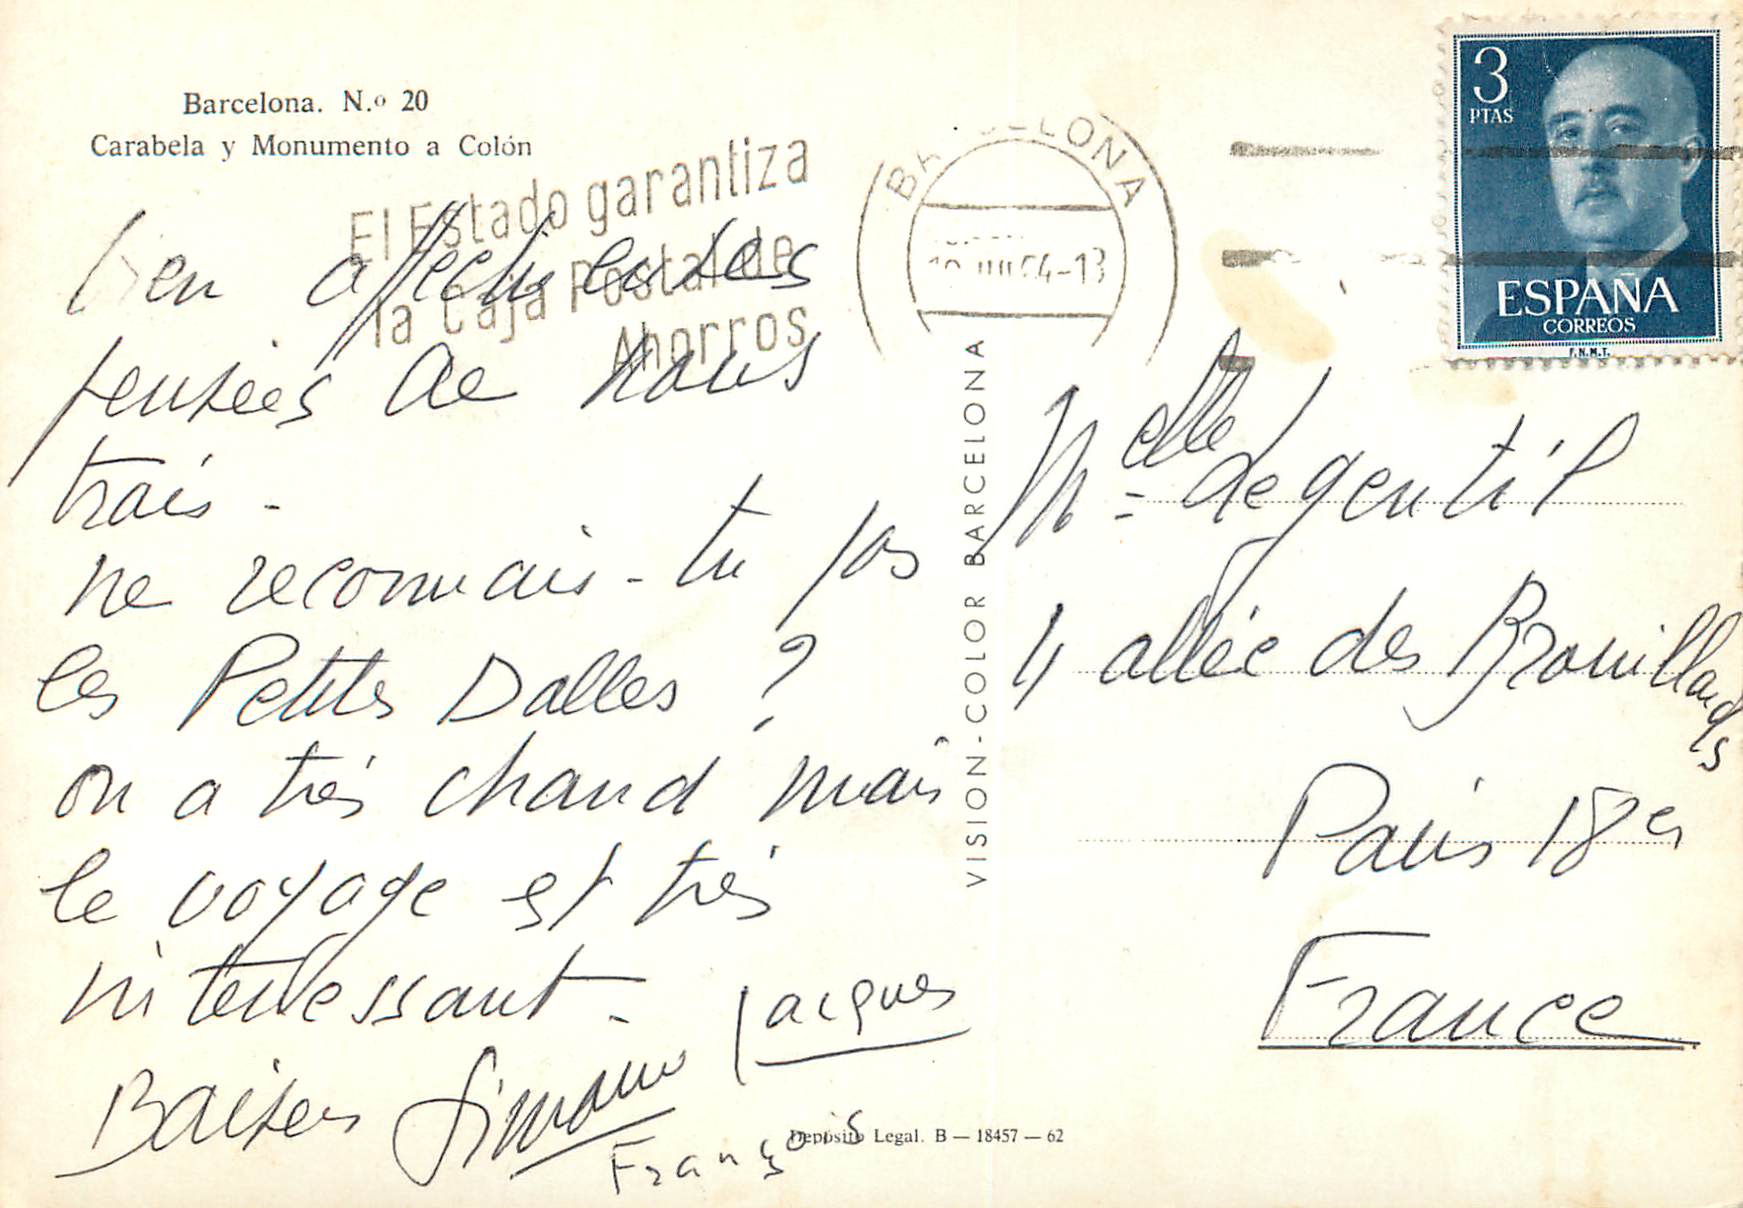 Barcelona. N.º 20
Carabela y Monumento a Colón
El Estado garantiza
la Caja Postal de
Ahorros
BARCELONA
3
PTAS
ESPAÑA
CORREOS
F.N.M.T.
bien affectueuses
pensées de nous
trois -
ne reconnais-tu pas
les Petites Dalles ?
on a très chaud mais
le voyage est très
interessant -
Jacques
Baisers Simone
François
VISION-COLOR BARCELONA
Melle Legentil
4 allée des Brouillards
Paris 18e
France
Depósito Legal. B — 18457 — 62